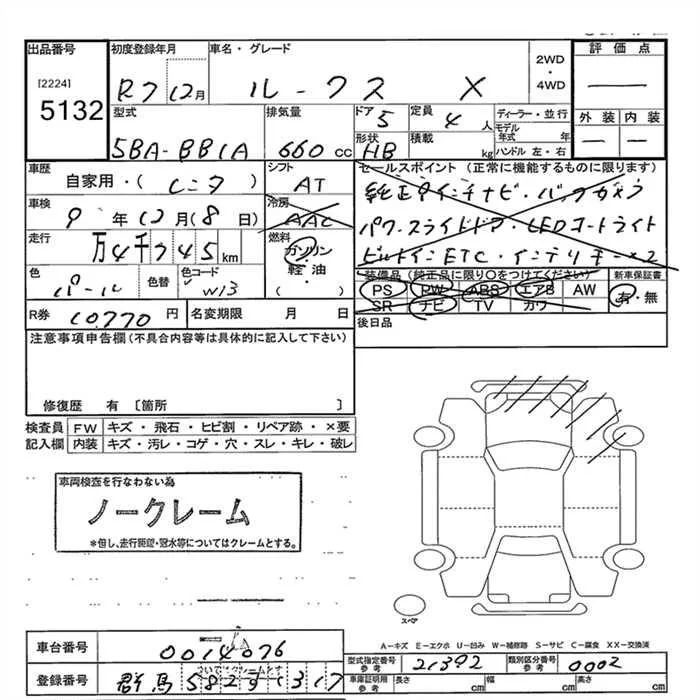 出品番号 初度登録年月 車名・グレード 2WD ・ 4WD 評価点
[2224]
5132
R7 12月 ルークス X
外装 内装
型式 排気量 ドア 5 定員 4 人 ディーラー・並行
モデル年式 年
形状 HB 積載 kg ハンドル 左・右
5BA-BB1A 660 cc
車歴 シフト セールスポイント (正常に機能するものに限ります)
自家用・( レンタ ) AT
純正9インチナビ・バックカメラ
車検 9年12月(8日) 冷房 AAC
パワースライドドア・LEDヘッドライト
走行 万4千745km 燃料 ガソリン・軽油・( )
ビルトインETC・インテリキー×2
色 パール 色替 色コード W13
装備品 (純正品に限り○をつけてください) 新車保証書
PS PW ABS エアB AW 有・無
SR ナビ TV カワ
R券 10,770 円 名変期限 月 日
後日品
注意事項申告欄(不具合内容等は具体的に記入して下さい)
修復歴 有 〔箇所 〕
検査員 FW キズ・飛石・ヒビ割・リペア跡・×要
記入欄 内装 キズ・汚レ・コゲ・穴・スレ・キレ・破レ
車両検査を行なわない為
ノークレーム
*但し、走行距離・冠水等についてはクレームとする。
スペア
A-キズ E-エクボ U-凹み W-補修跡 S-サビ C-腐食 XX-交換済
車台番号 0014076
型式指定番号 参考 21392 類別区分番号 参考 0002
登録番号 群馬 582 す 1317
車庫証明用 参考 長さ cm 幅 cm 高さ cm